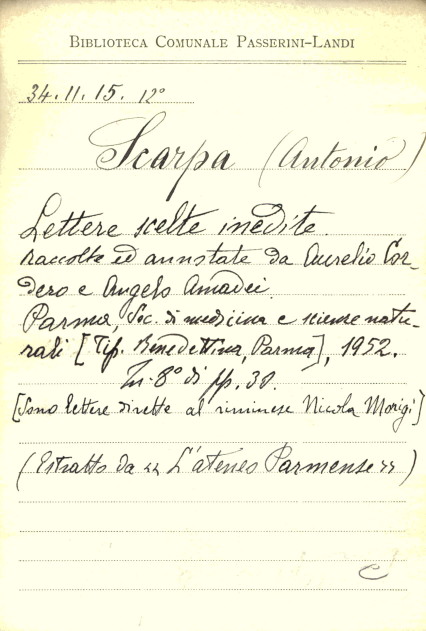 BIBLIOTECA COMUNALE PASSERINI-LANDI
34.11.15. 12º
Scarpa (Antonio)
Lettere scelte inedite
raccolte ed annotate da Aurelio Cor-
dero e Angelo Amadei.
Parma, Soc. di medicina e scienze natu-
rali [Tip. Benedettina, Parma], 1952.
In-8º di pp. 30.
[Sono lettere dirette al riminese Nicola Morigi]
(Estratto da « L'ateneo Parmense »)
C